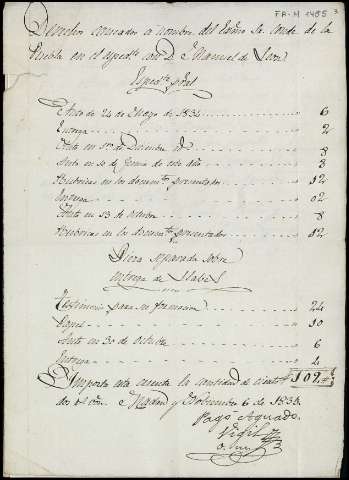 FA-M 1485
Derechos causados a nombre del Exmo Sr. Conde de la
Puebla en el espedte con D. Manuel de
Espedte pral
Auto de 24 de Mayo de 1834 6
Entrega 2
Auto en 1º de Diciembre 8
Auto en 10 de Junio de este año 8
Rubricas en los documtos presentados 12
Entrega 2
Auto en 13 de octubre 8
Rubricas en los documtos presentados 12
Pieza separada sobre
entrega de Llabes
Testimonio para su formacion 24
Papel 10
Auto en 30 de octubre 6
Entrega 2
Importa esta cuenta la cantidad de ciento 102
dos rs. vn. Madrid y Noviembre 6 de 1835
Pagó Aguado
Vigil